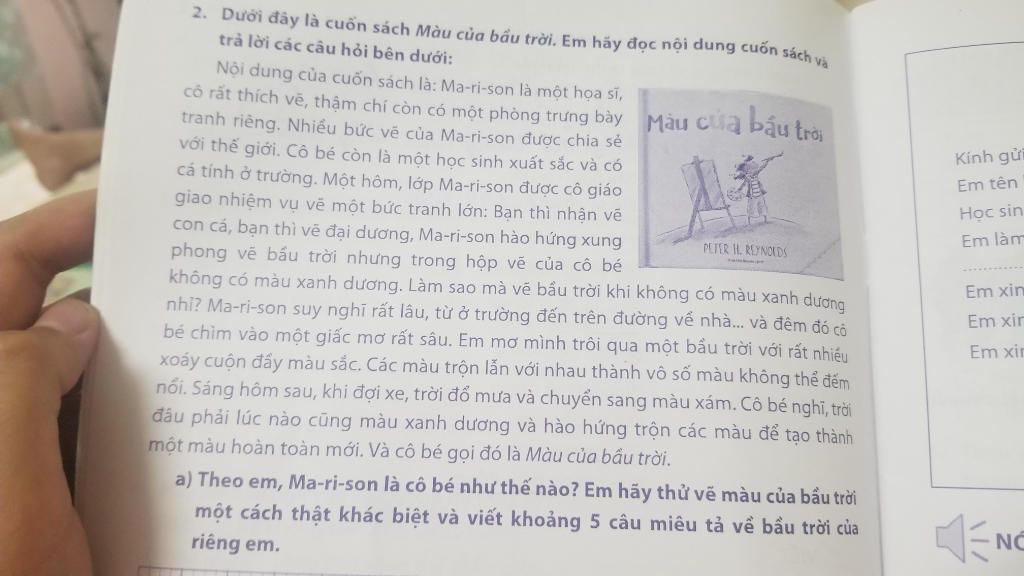 2. Dưới đây là cuốn sách Màu của bầu trời. Em hãy đọc nội dung cuốn sách và
trả lời các câu hỏi bên dưới:
Nội dung của cuốn sách là: Ma-ri-son là một họa sĩ,
cô rất thích vẽ, thậm chí còn có một phòng trưng bày
tranh riêng. Nhiều bức vẽ của Ma-ri-son được chia sẻ
với thế giới. Cô bé còn là một học sinh xuất sắc và có
cá tính ở trường. Một hôm, lớp Ma-ri-son được cô giáo
giao nhiệm vụ vẽ một bức tranh lớn: Bạn thì nhận vẽ
con cá, bạn thì vẽ đại dương, Ma-ri-son hào hứng xung
phong vẽ bầu trời nhưng trong hộp vẽ của cô bé
không có màu xanh dương. Làm sao mà vẽ bầu trời khi không có màu xanh dương
nhỉ? Ma-ri-son suy nghĩ rất lâu, từ ở trường đến trên đường về nhà... và đêm đó cô
bé chìm vào một giấc mơ rất sâu. Em mơ mình trôi qua một bầu trời với rất nhiều
xoáy cuộn đầy màu sắc. Các màu trộn lẫn với nhau thành vô số màu không thể đếm
nổi. Sáng hôm sau, khi đợi xe, trời đổ mưa và chuyển sang màu xám. Cô bé nghĩ, trời
đâu phải lúc nào cũng màu xanh dương và hào hứng trộn các màu để tạo thành
một màu hoàn toàn mới. Và cô bé gọi đó là Màu của bầu trời.
a) Theo em, Ma-ri-son là cô bé như thế nào? Em hãy thử vẽ màu của bầu trời
một cách thật khác biệt và viết khoảng 5 câu miêu tả về bầu trời của
riêng em.
Màu của bầu trời
PETER H. REYNOLDS
Kính gửi
Em tên
Học sin
Em làm
Em xin
Em xin
Em xin
NÓ